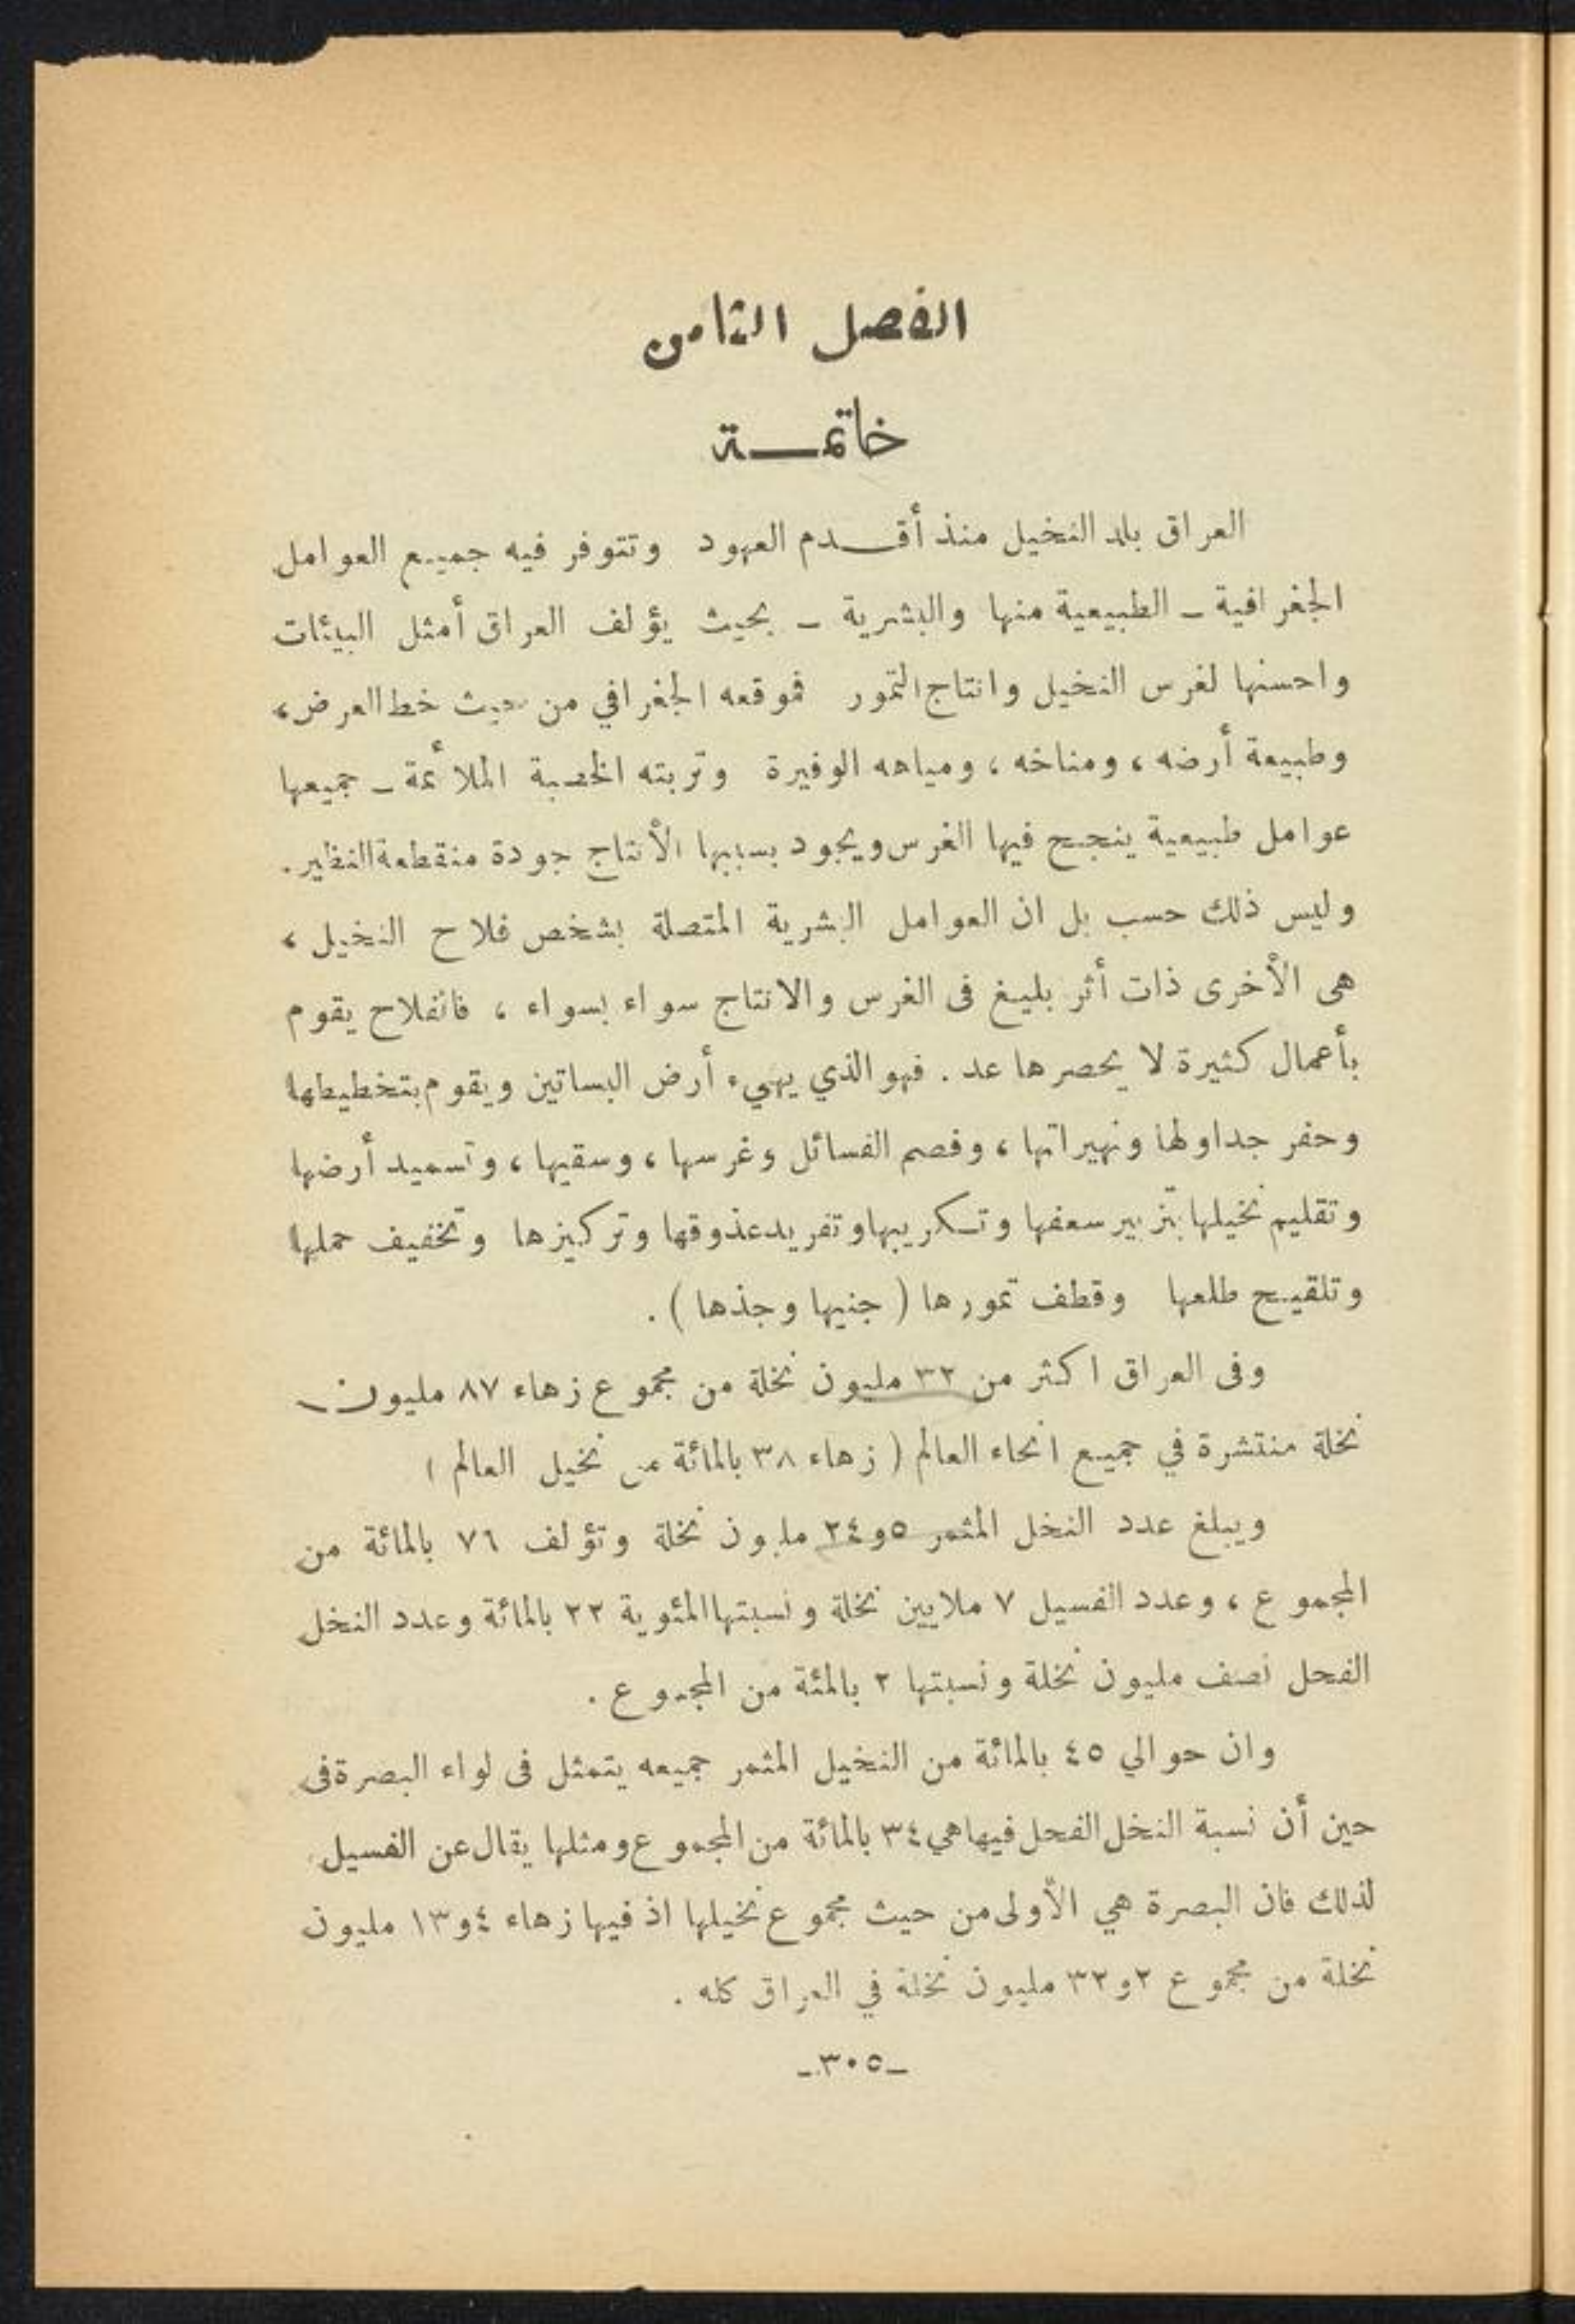 الفصل الثامن
خاتمـــة
العراق بلد النخيل منذ أقـــدم العهود وتتوفر فيه جميع العوامل
الجغرافية ــ الطبيعية منها والبشرية ــ بحيث يؤلف العراق أمثل البيئات
واحسنها لغرس النخيل وانتاج التمور فموقعه الجغرافي من حيث خط العرض،
وطبيعة أرضه، ومناخه، ومياهه الوفيرة وتربته الخصبة الملائمة ــ جميعها
عوامل طبيعية ينجح فيها الغرس ويجود بسببها الأنتاج جودة منقطعة النظير.
وليس ذلك حسب بل ان العوامل البشرية المتصلة بشخص فلاح النخيل،
هى الأخرى ذات أثر بليغ فى الغرس والانتاج سواء بسواء، فالفلاح يقوم
بأعمال كثيرة لا يحصرها عد. فهو الذي يهيء أرض البساتين ويقوم بتخطيطها
وحفر جداولها ونهيراتها، وفصم الفسائل وغرسها، وسقيها، وتسميد أرضها
وتقليم نخيلها بتزبير سعفها وتكريبها وتفريد عذوقها وتركيزها وتخفيف حملها
وتلقيح طلعها وقطف تمورها (جنيها وجذها).
وفى العراق اكثر من ٣٢ مليون نخلة من مجموع زهاء ٨٧ مليون
نخلة منتشرة في جميع انحاء العالم (زهاء ٣٨ بالمائة من نخيل العالم)
ويبلغ عدد النخل المثمر ٥و٢٤ مليون نخلة وتؤلف ٧٦ بالمائة من
المجموع، وعدد الفسيل ٧ ملايين نخلة ونسبتها المئوية ٢٢ بالمائة وعدد النخل
الفحل نصف مليون نخلة ونسبتها ٢ بالمئة من المجموع.
وان حوالي ٤٥ بالمائة من النخيل المثمر جميعه يتمثل فى لواء البصرة فى
حين أن نسبة النخل الفحل فيها هي ٣٤ بالمائة من المجموع ومثلها يقال عن الفسيل
لذلك فان البصرة هي الأولى من حيث مجموع نخيلها اذ فيها زهاء ٤و١٣ مليون
نخلة من مجموع ٢و٣٢ مليون نخلة في العراق كله.
ــ٣٠٥ــ